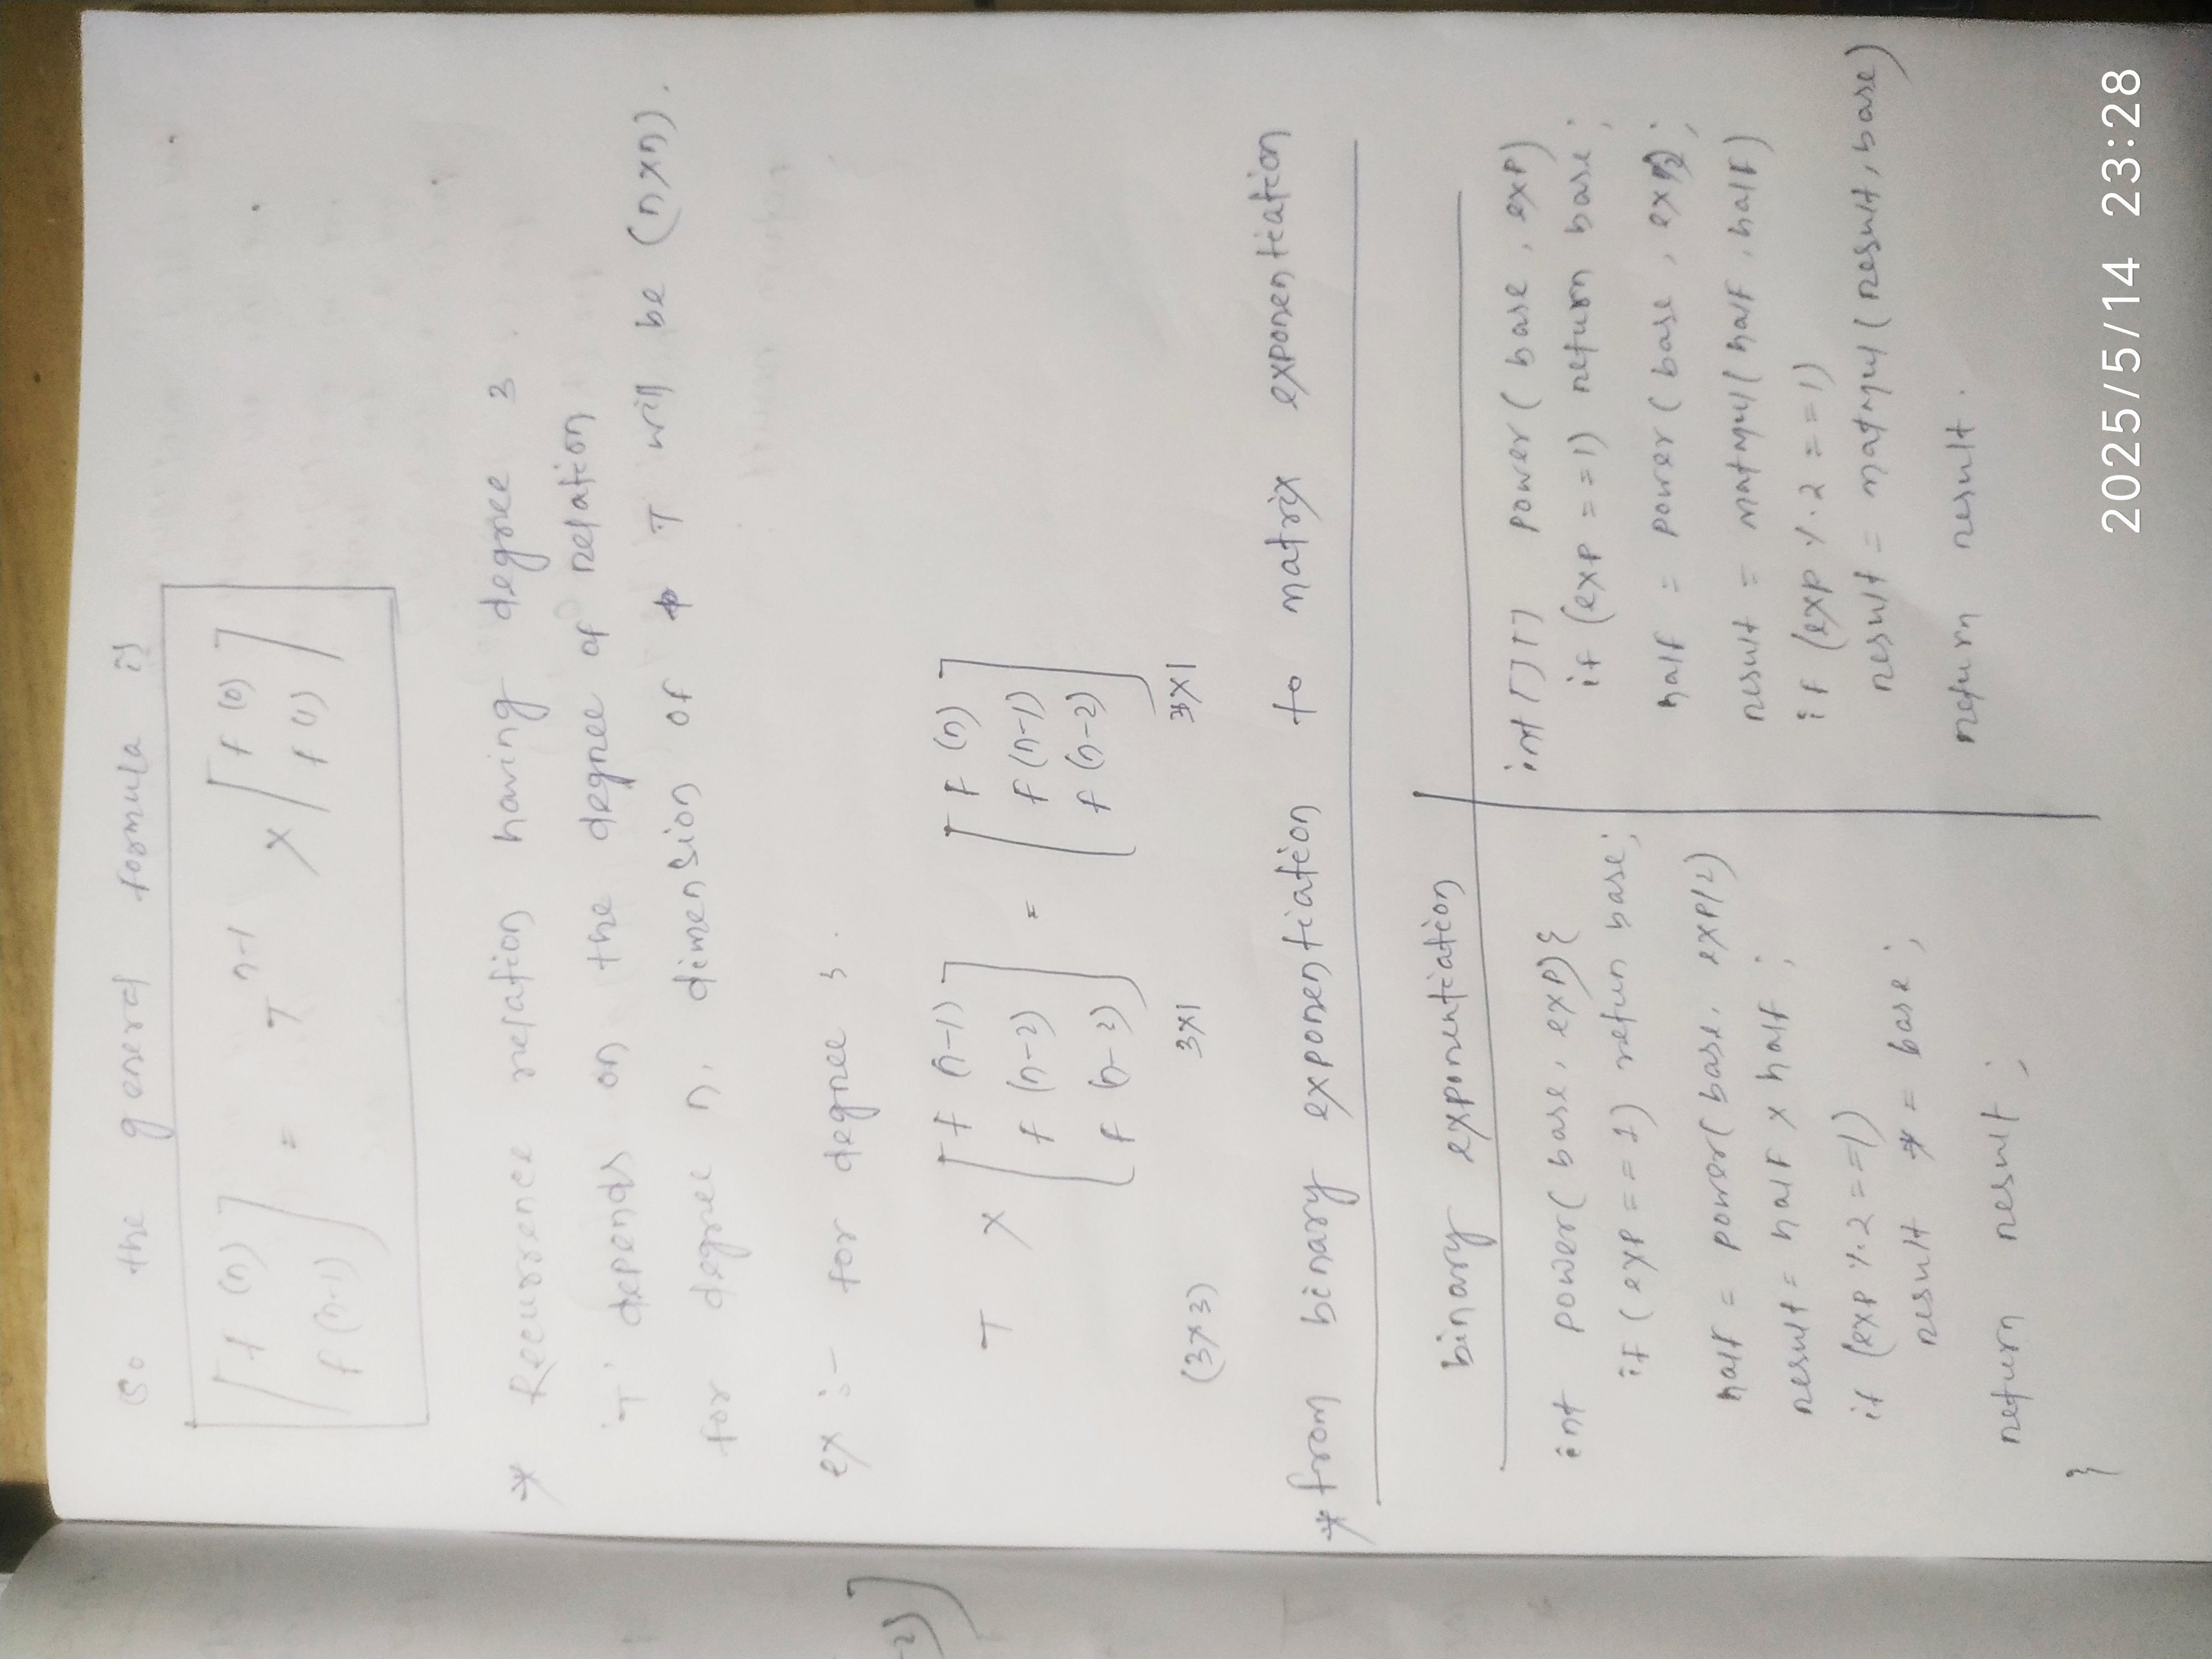 So the general formula is
[f (n) f (n-1)] = T^n-1 × [f (0) f (1)]
* Recurrence relation having degree 3.
'T' depends on the degree of relation
for degree n, dimension of T will be (n×n).
ex :- for degree 3.
T × [f (n-1) f (n-2) f (n-3)] = [f (n) f (n-1) f (n-2)]
(3×3) 3×1 3×1
* from binary exponentiation to matrix exponentiation
binary exponentiation
int power( base, exp){
if ( exp == 1) retun base;
half = power( base, exp/2)
result = half × half ;
if (exp % 2 ==1)
result * = base ;
return result ;
}
int [ ] [ ] power ( base , exp)
if (exp ==1) return base ;
half = power ( base , exp/2) ;
result = matmul ( half , half )
if (exp % 2 ==1)
result = matmul ( result , base )
return result .
-2)]
2025/5/14 23:28